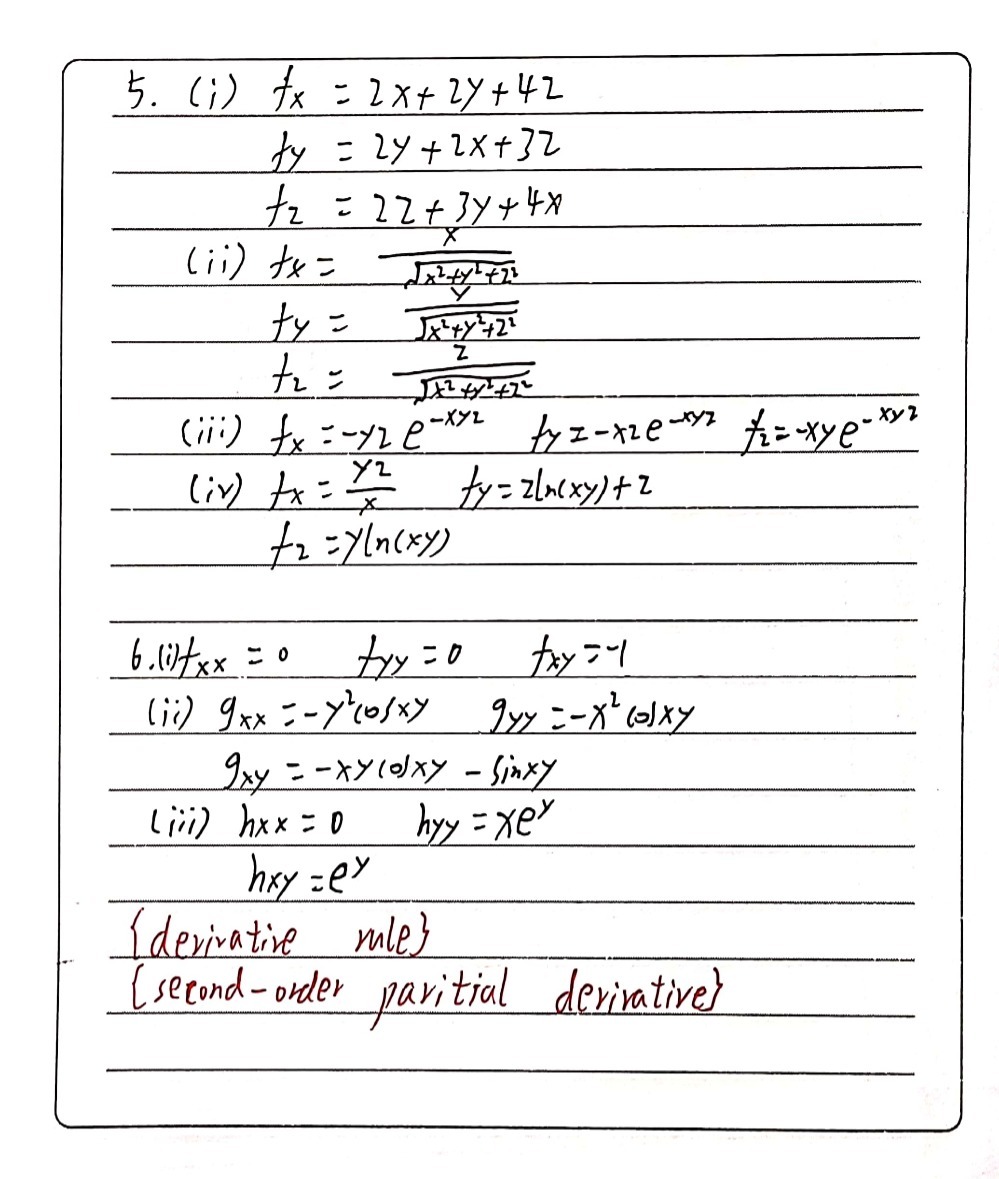 5. (i) fx = 2x+2y+4z
fy = 2y+2x+3z
fz = 2z+3y+4x
(ii) fx = x/√(x²+y²+z²)
fy = y/√(x²+y²+z²)
fz = z/√(x²+y²+z²)
(iii) fx = -yz e^(-xyz) fy = -xz e^(-xyz) fz = -xy e^(-xyz)
(iv) fx = yz/x fy = zln(xy)+z
fz = yln(xy)
6.(i) fxx = 0 fyy = 0 fxy = -1
(ii) gxx = -y²cosxy gyy = -x²cosxy
gxy = -xycosxy - sinxy
(iii) hxx = 0 hyy = xe^y
hxy = e^y
{derivative rule}
{second-order paritial derivative}